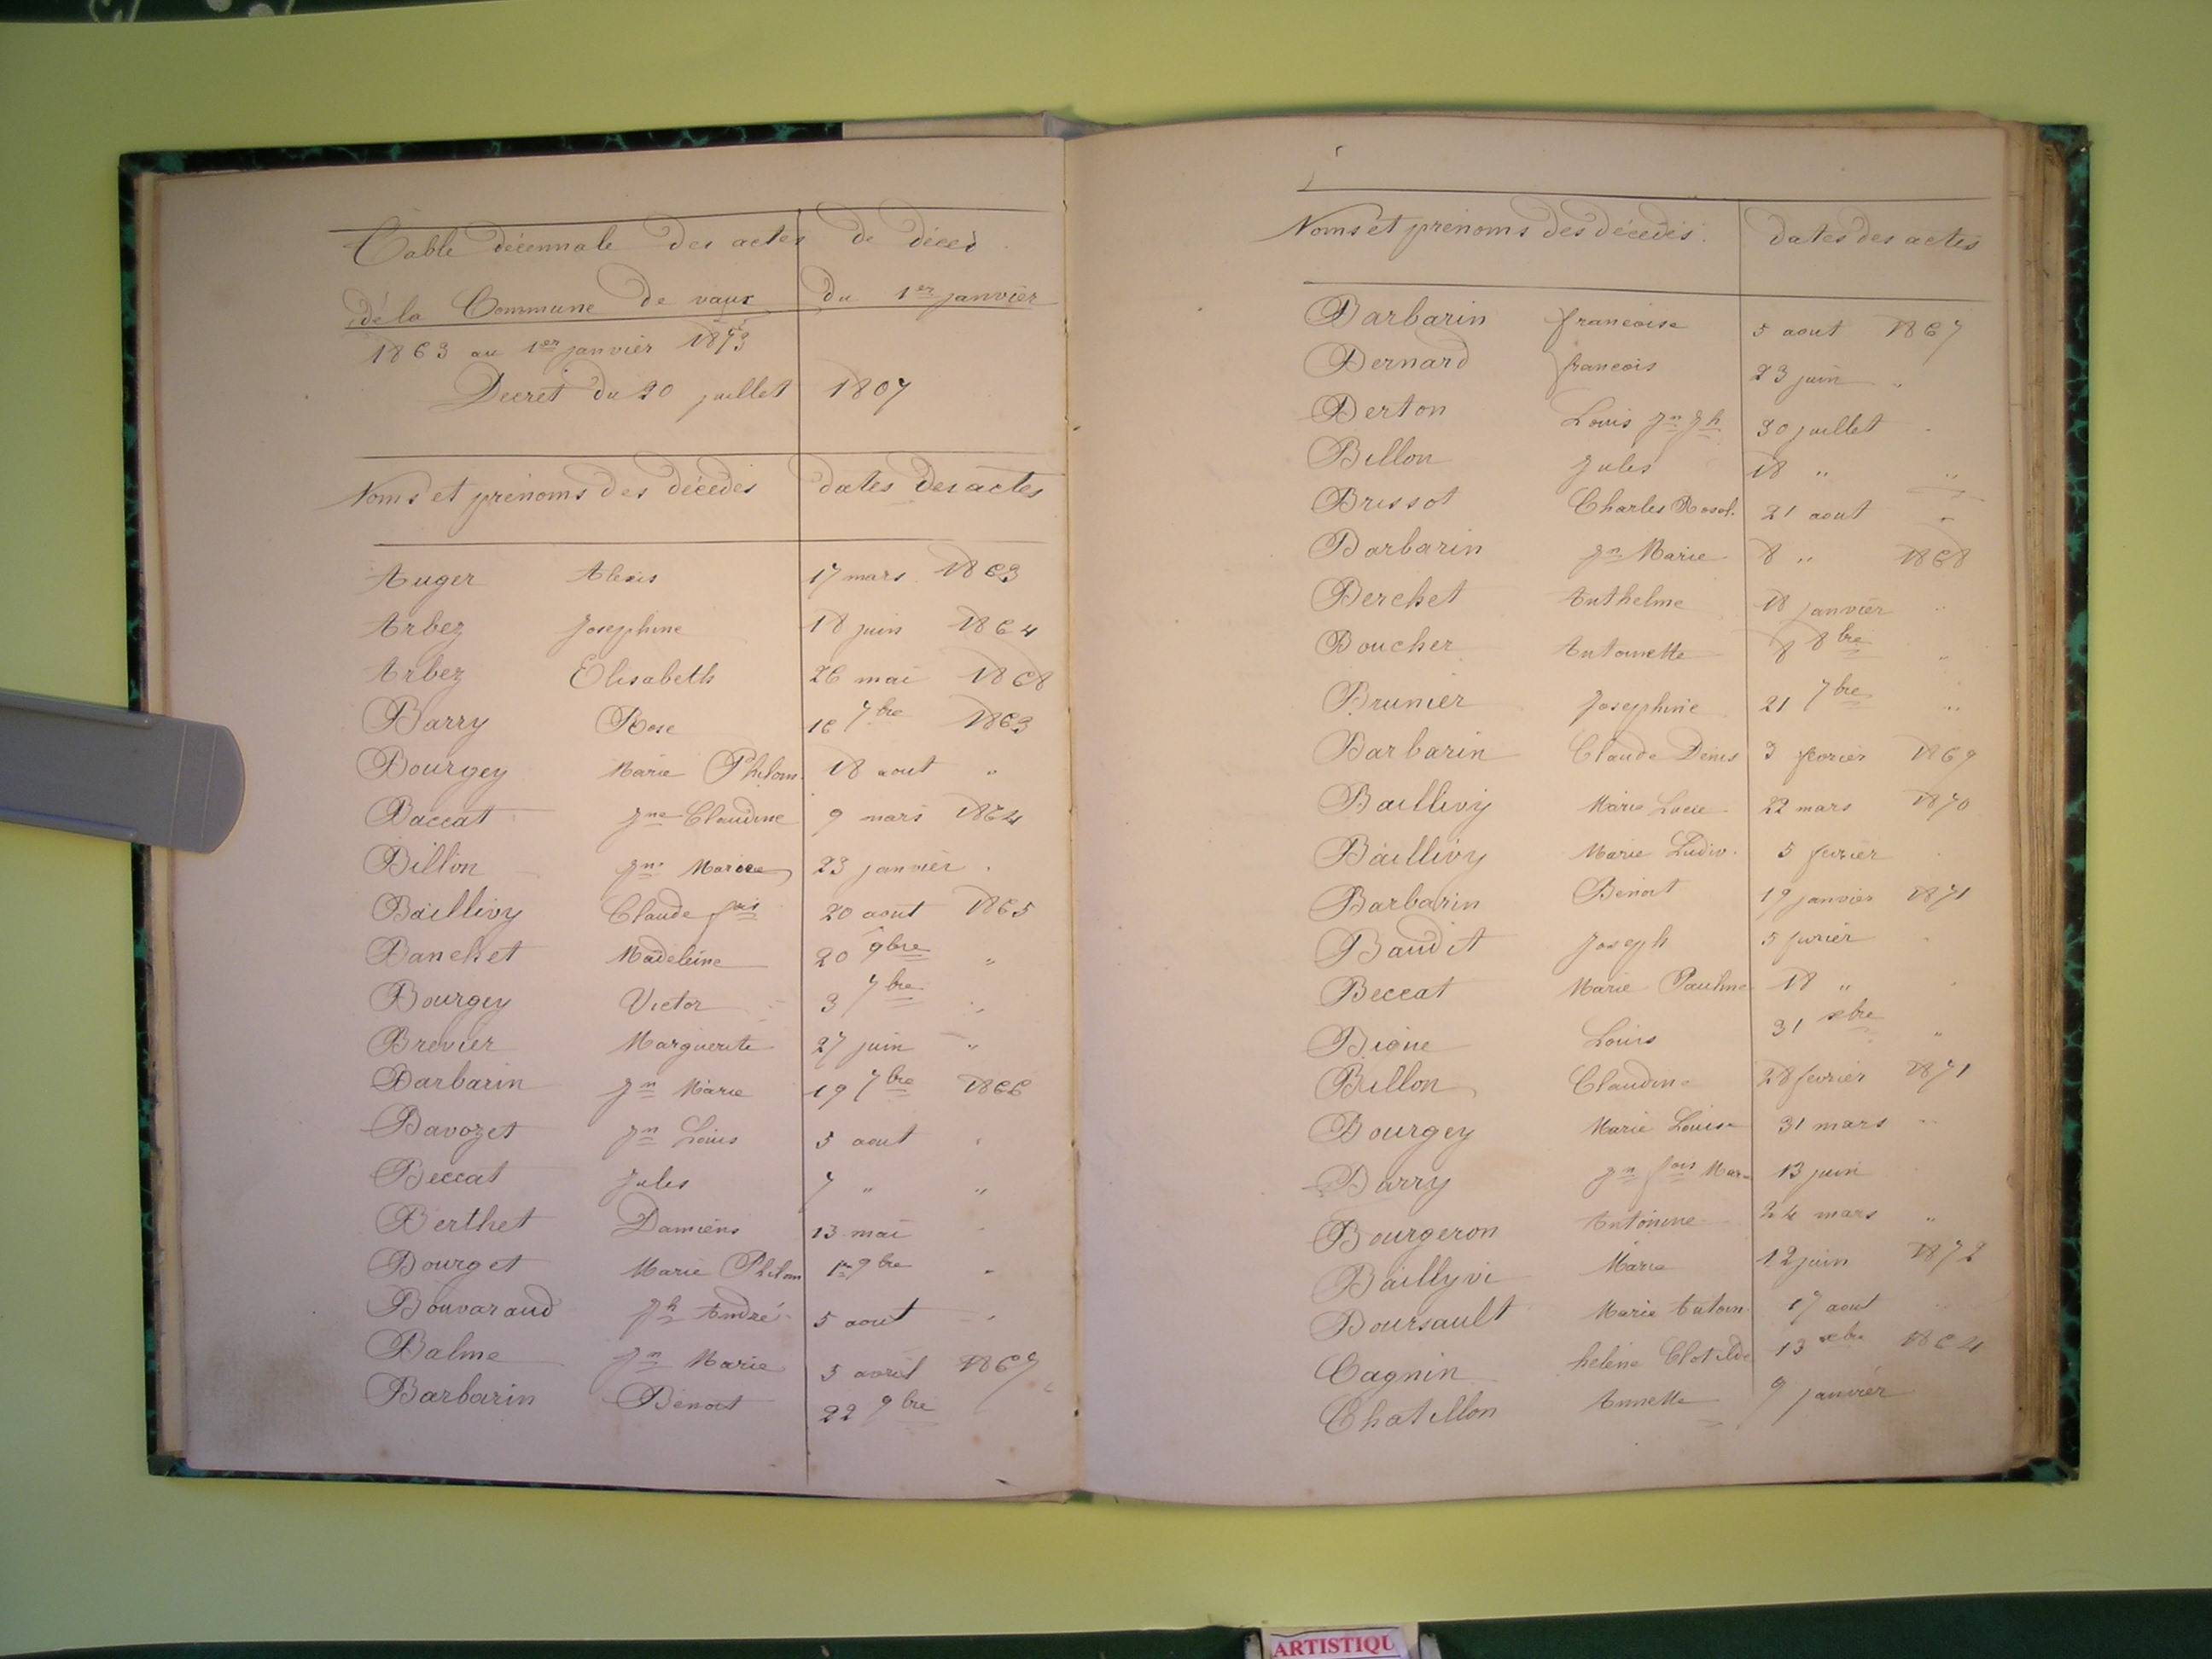 Table décennale des actes de décès
de la Commune de vaux du 1er janvier
1863 au 1er janvier 1873
Decret du 20 juillet 1807
Noms et prénoms des décédés dates des actes
Auger Alexis 17 mars 1863
Arbez Josephine 18 juin 1864
Arbez Elisabeth 26 mai 1868
Barry Rose 16 7bre 1863
Bourgey Marie Philom. 18 aout "
Baccat Jne Claudine 9 mars 1864
Billion Jne 23 janvier "
Baillivy Claude fois 20 aout 1865
Banchet Madeleine 20 9bre "
Bourgey Victor 3 7bre "
Brevier Marguerite 27 juin "
Barbarin Jn Marie 19 7bre 1866
Bavozet Jn Louis 5 aout "
Beccat Jules 7 " "
Berthet Damiens 13 mai "
Bourget Marie Philom 1er 9bre "
Bouvaraud Jh André 5 aout "
Balme Jn Marie 5 avril 1867
Barbarin Benoit 22 9bre
Noms et prénoms des décédés. dates des actes
Barbarin francoise 5 aout 1867
Bernard francois 23 juin "
Berton Louis Jn Jh 30 juillet "
Billon Jules 18 " "
Brissot Charles Rosal. 21 aout "
Barbarin Jn Marie 8 " 1868
Berchet Anthelme 18 janvier "
Boucher Antoinette 8 8bre "
Brunier Josephine 21 7bre "
Barbarin Claude Denis 3 fevrier 1869
Baillivy Marie Lucie 22 mars 1870
Baillivy Marie Ludiv. 5 fevrier "
Barbarin Benoit 19 janvier 1871
Baudit Joseph 5 fevrier "
Beccat Marie Pauline 18 " "
Louis 31 xbre "
Billon Claudine 28 fevrier 1871
Bourgey Marie Louise 31 mars "
Barry Jn fois Mar 13 juin
Bourgeron Antonine 24 mars "
Baillyvi Marie 12 juin 1872
Boursault Marie Antoin. 17 aout "
Cagnin helene Clotilde 13 xbre 1864
Chatillon Annette 9 janvier
ARTISTIQU